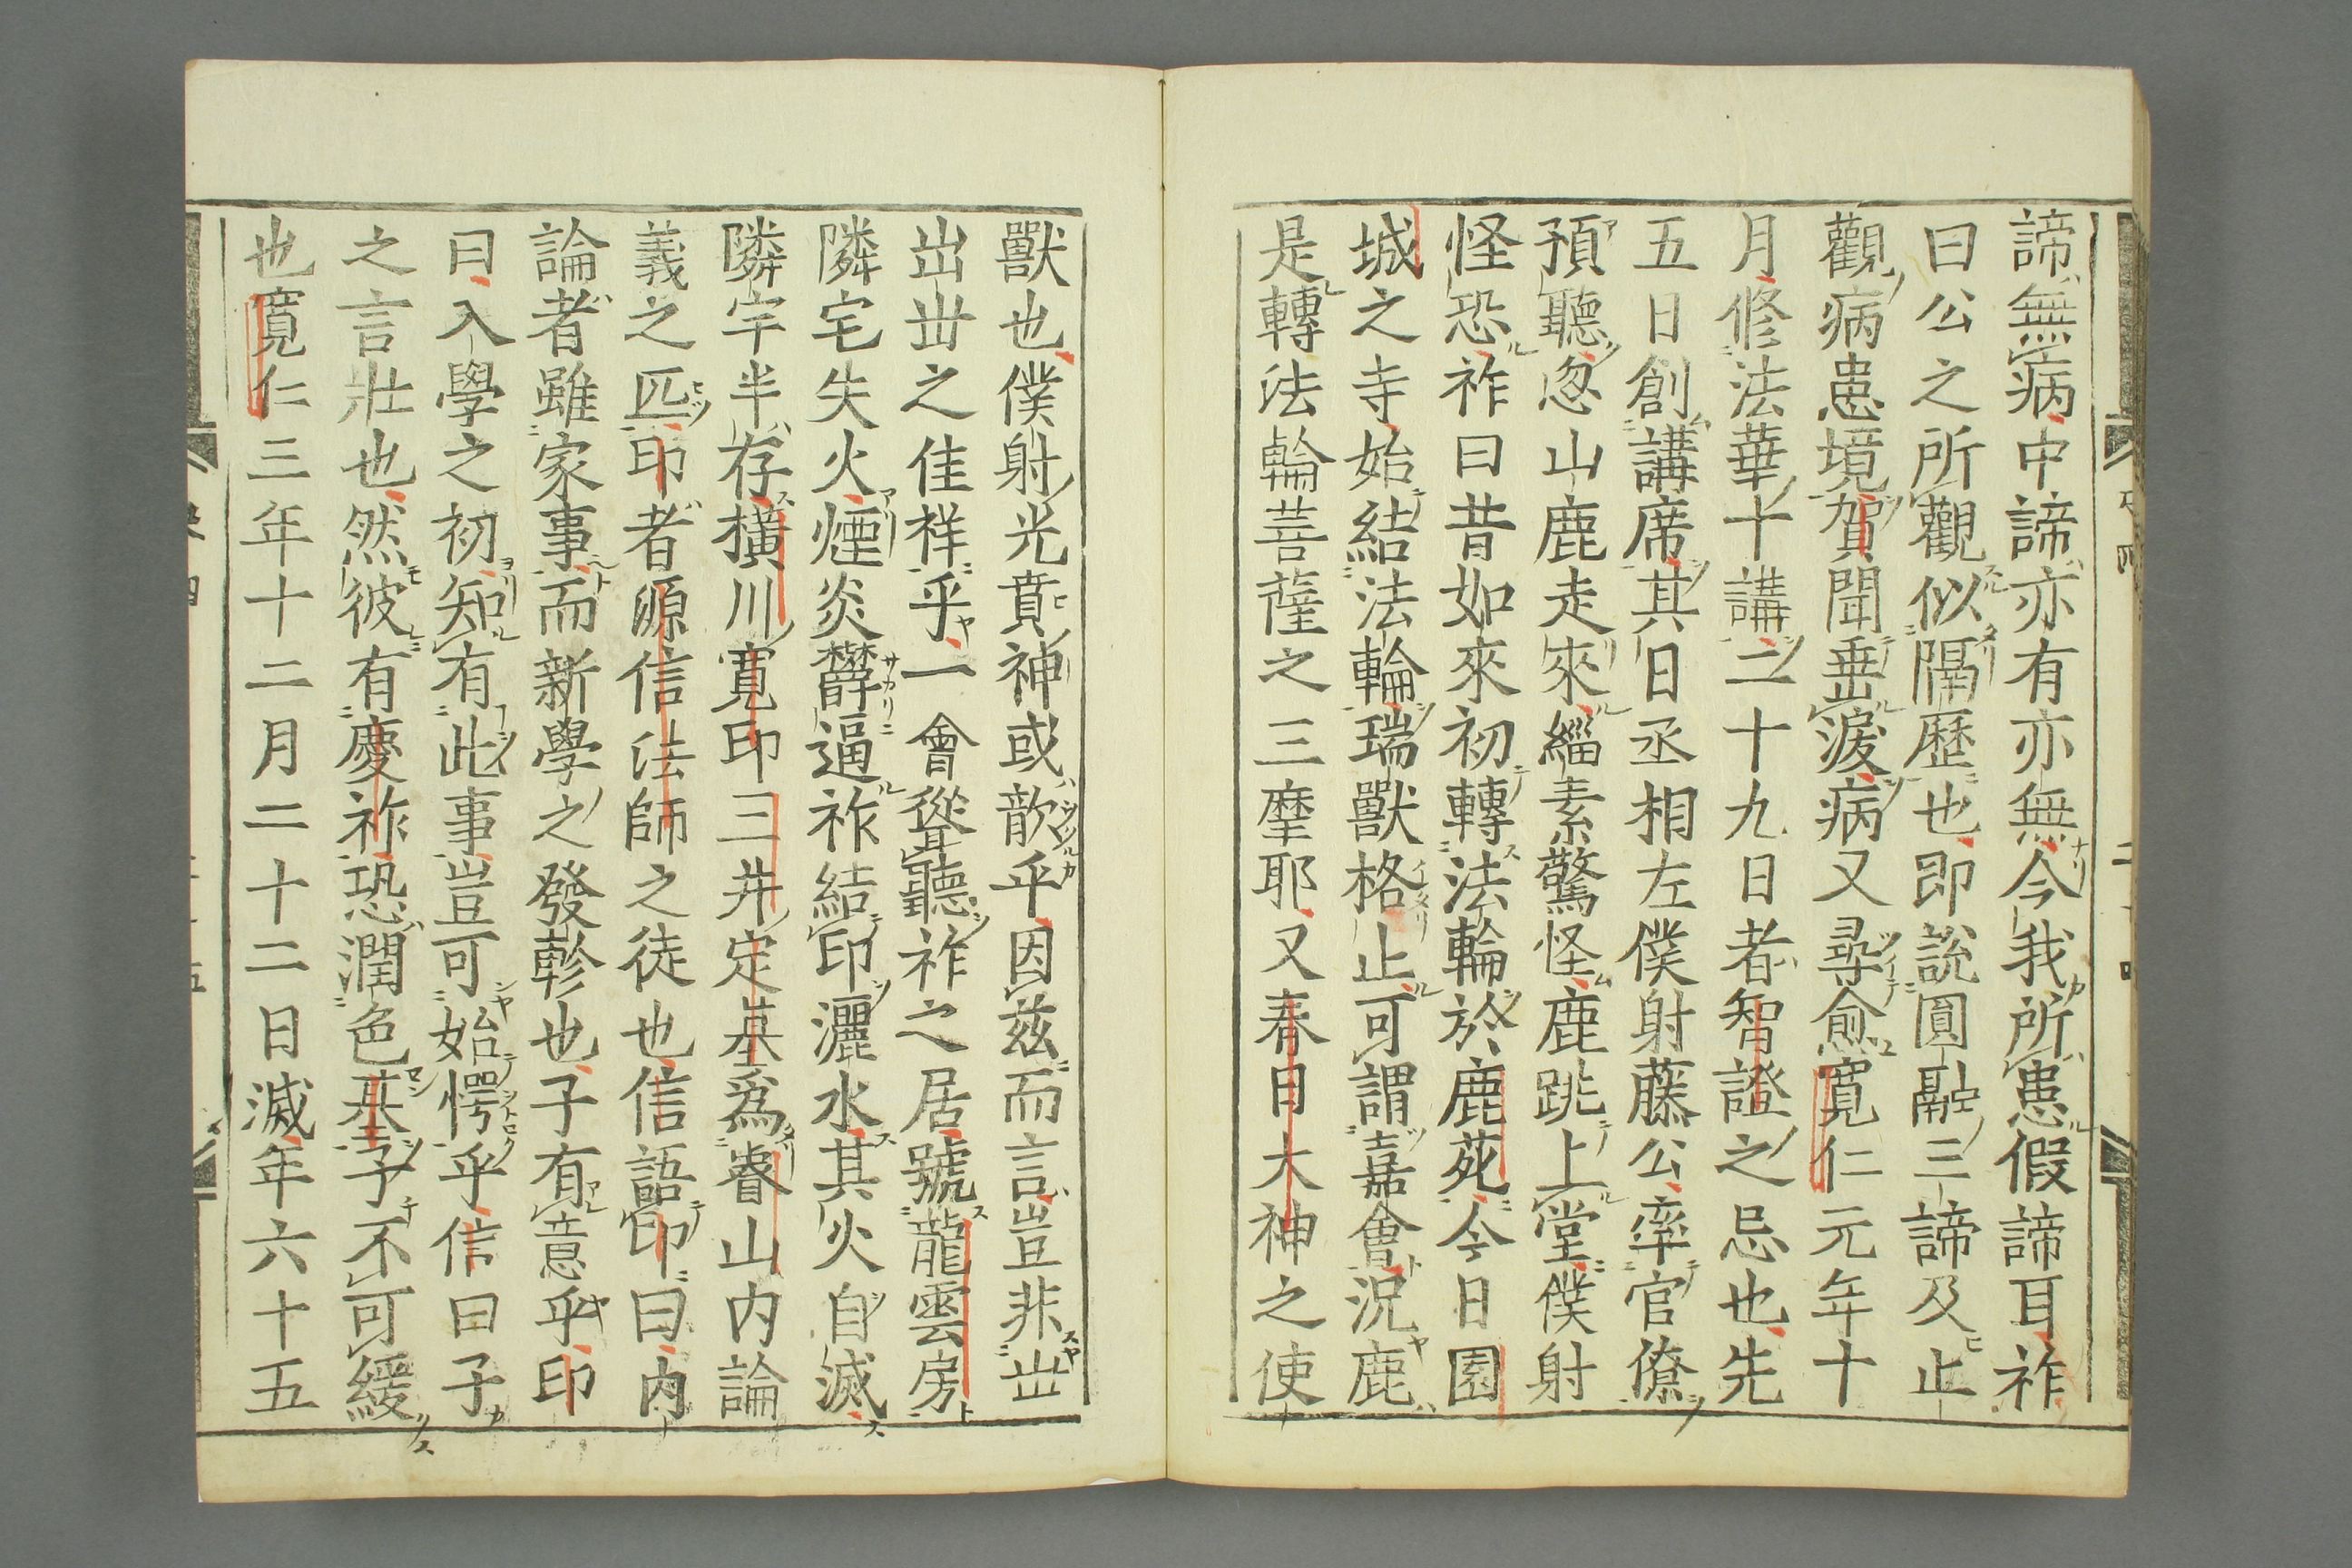 諦無病中諦亦有亦無今我所患假諦耳祚
曰公之所觀似隔歷也即說圓融三諦及止
觀病患境賀聞垂淚病又尋愈寬仁元年十
月修法華十講二十九日者智證之忌也先
五日創講席其日丞相左僕射藤公率官僚
預聽忽山鹿走來緇素驚怪鹿跳上堂僕射
怪恐祚曰昔如來初轉法輪於鹿苑今日園
城之寺始結法輪瑞獸格止可謂嘉會況鹿
是轉法輪菩薩之三摩耶又春日大神之使
獸也僕射光賁神或歆乎因茲而言豈非出
出世之佳祥乎一會聳聽祚之居號龍雲房
隣宅失火煙炎欝逼祚結印灑水其火自滅
隣宇半存橫川寬印三井定基爲睿山内論
義之匹印者源信法師之徒也信語印曰内
論者雖家事而新學之發軫也子有意乎印
曰入學之初知有此事豈可始愕乎信曰子
之言壯也然彼有慶祚恐潤色基予不可緩
也寬仁三年十二月二十二日滅年六十五